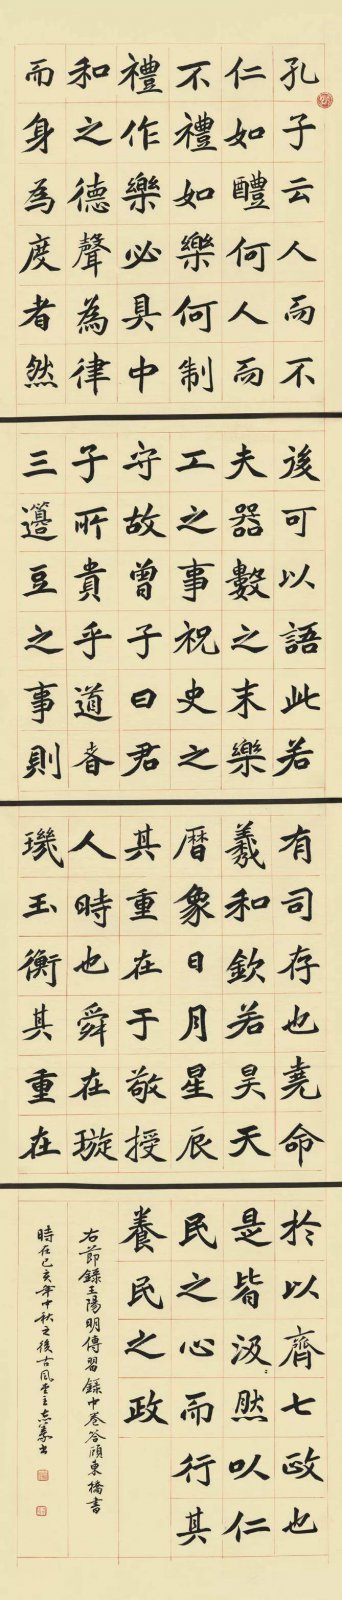 孔子云人而不
仁如醴何人而
不禮如樂何制
禮作樂必具中
和之德聲為律
而身為度者然
後可以語此若
夫器數之末樂
工之事祝史之
守故曾子曰君
子所貴乎道者
三籩豆之事則
有司存也堯命
羲和欽若昊天
曆象日月星辰
其重在于敬授
人時也舜在璇
璣玉衡其重在
於以齊七政也
是皆汲〻然以仁
民之心而行其
養民之政
右節錄王陽明傳習錄中卷答顧東橋書
時在己亥年中秋之後古風堂主